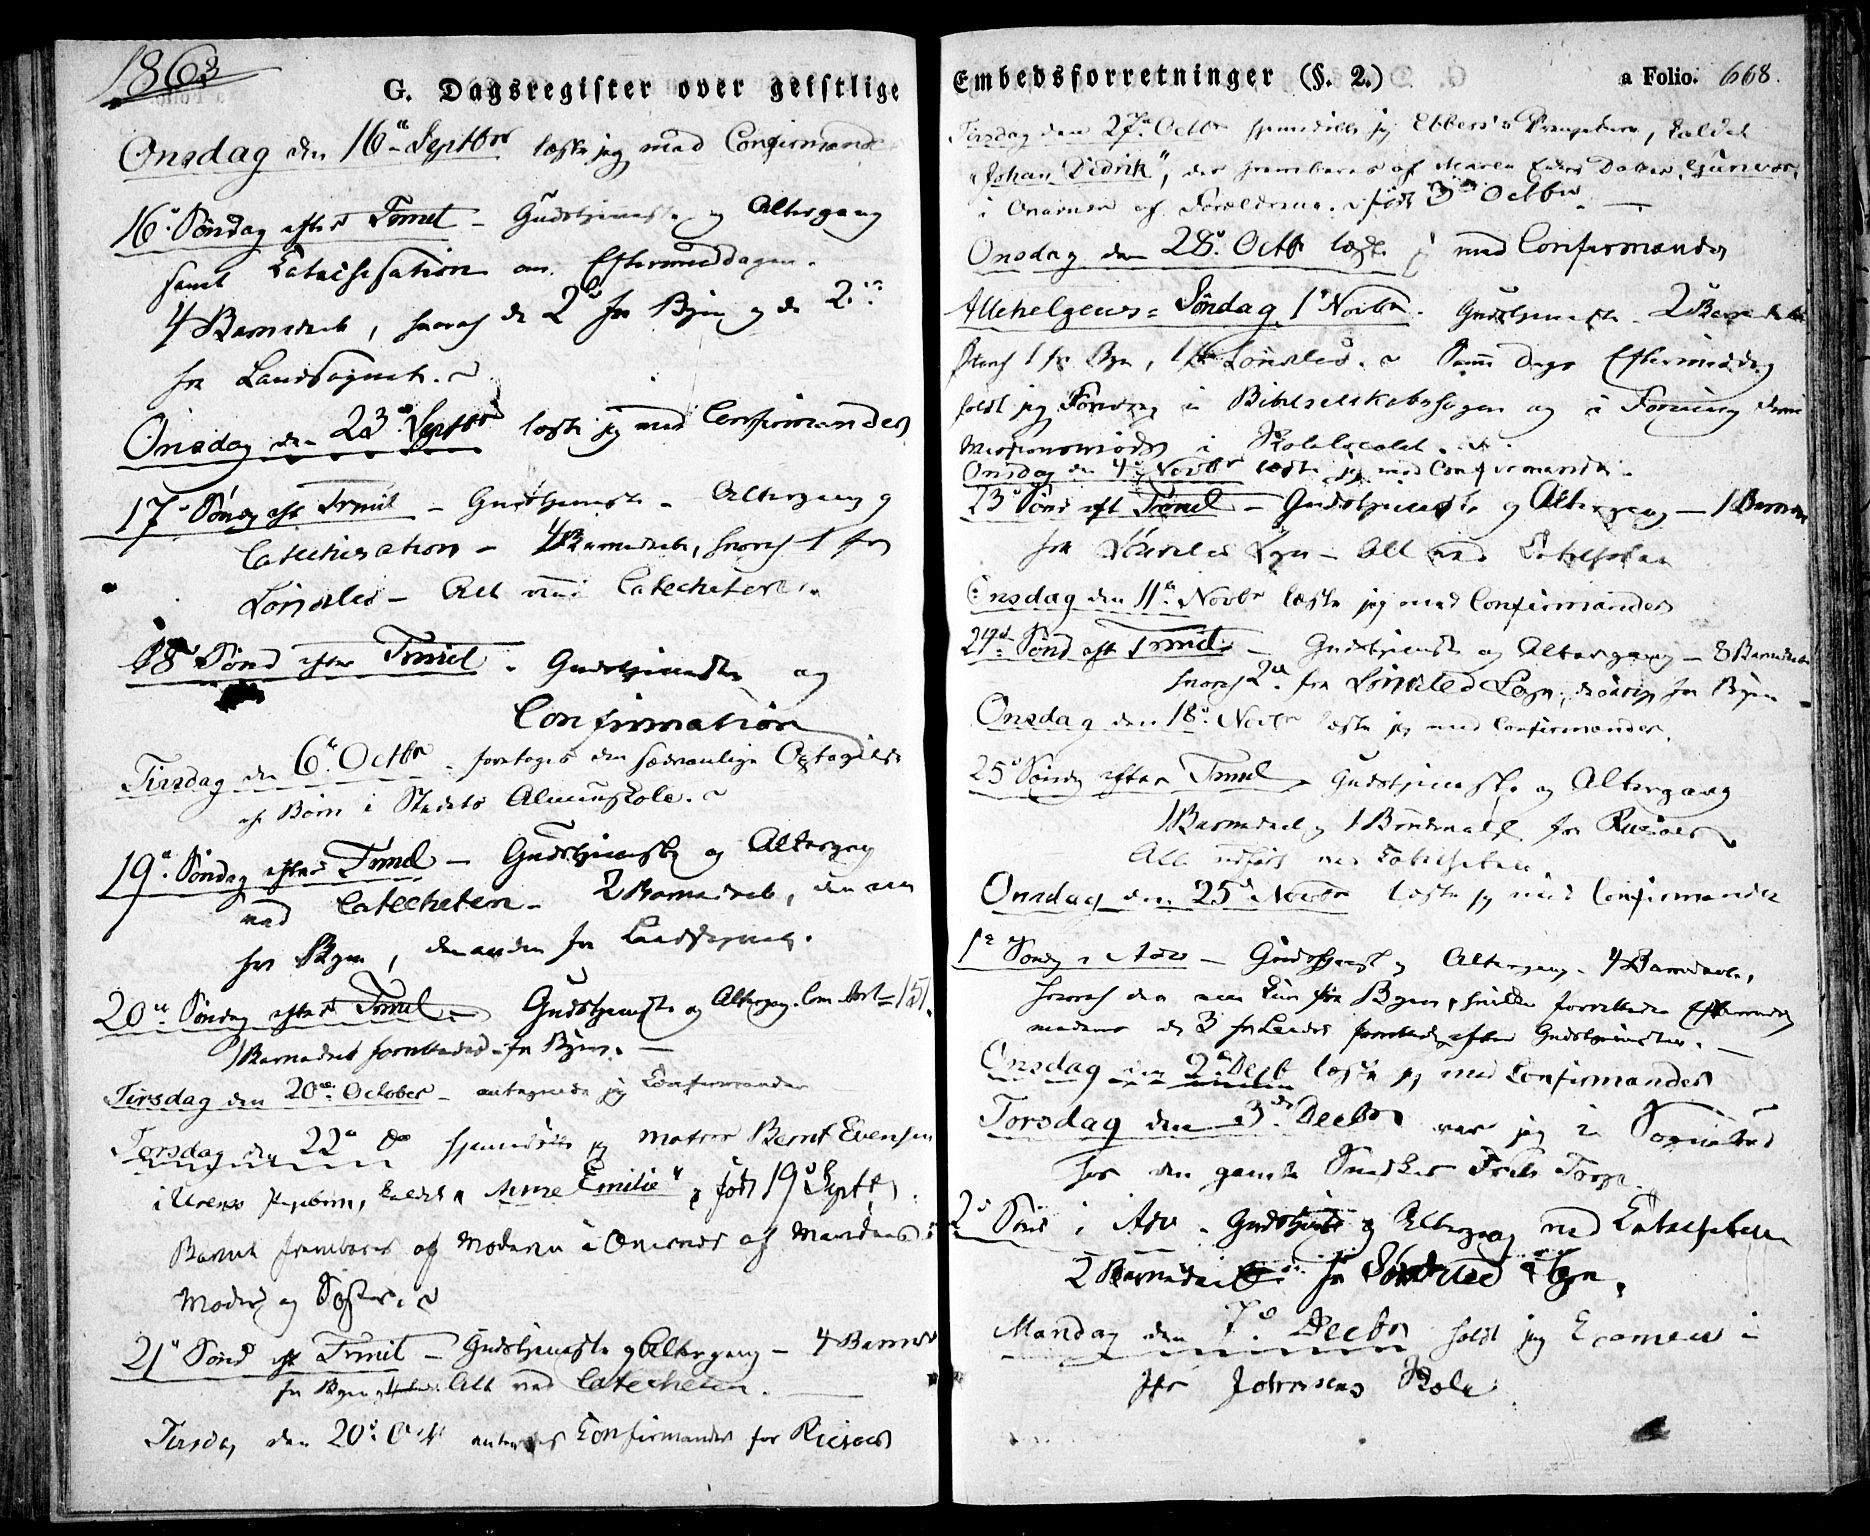 1863
G. Dagsregister over geistlige
Onsdag den 16de Septbr læste jeg med Confirmand
16de Søndag efter Trinit – Gudstjeneste og Altergang
samt Catechisation om Eftermiddagen.
4 Barnedaab, hvoraf de 2de fra Byen og de 2de
fra Landsognet.
Onsdag den 23de Septbr læste jeg med Confirmander
17de Søndag eft Trinit – Gudstjeneste – Altergang og
Catechisation – 4 Barnedaab, hvoraf 1 fra
Søndeled – Alt ved Catecheten.
18de Sønd efter Trinit. Gudstjeneste og
Confirmation
Tirsdag den 6te Octbr foretoges den sædvanlige Optagelse
af Børn i Stadets Almuskole.
19de Søndag efter Trinit – Gudstjeneste og Altergang
ved Catecheten – 2 Barnedaab, den ene
fra Byen, den anden fra Landsognet.
20de Søndag efter Trinit. Gudstjeneste og Alterg. Com. Ant = 151.
1 Barnedaab forrettedes – fra Byen.
Tirsdag den 20de October – antegnede jeg Confirmander
Torsdag den 22de do hjemmedøbte jeg Matros Bernt Evensen
i Urens Pigebarn, kaldet „Anne Emilie“, født 19de Septbr.
Barnet frembares af Moderen i Overvær af Mandens
Moder og Søster.
21de Sønd eft Trinit – Gudstjeneste og Altergang – 4 Barned
fra Byen Alt ved Catecheten.
Tirsdag den 20de Oct antegnes Confirmander for Riisøer
Embedsforretninger (§. 2.)
a Folio. 668.
Tirsdag den 27de Octbr hjemmedøbte jeg Drengebarn, kaldet
„Johan Didrik“, der frembares af
i Overvær af Forældrene. født 3die Octbr.
Onsdag den 28de Octbr læste jeg med Confirmander
Allehelgens-Søndag 1ste Novbr. Gudstjeneste – 2 Barnedaab
hvoraf 1 fra Byen, 1 fra Søndeled. Samme Dags Eftermiddag
holdt jeg Foredrag i Bibelselskabssagen og i Forening
Missionsmøde i Skolelocalet.
Onsdag den 4de Novbr læste jeg med Confirmander.
23de Sønd eft Trinit – Gudstjeneste og Altergang – 1 Barned
fra Søndeled Sogn – Alt ved Catecheten
Onsdag den 11te Novbr læste jeg med Confirmander
24de Sønd eft Trinit – Gudstjeneste og Altergang – 8 Barnedaab
hvoraf 2de fra Søndeled Sogn, de øvrige fra Byen
Onsdag den 18de Novbr læste jeg med Confirmander.
25de Søndag efter Trinit. Gudstjeneste og Altergang
1 Barnedaab og 1 Brudevielse fra Riisøer
Alt udført ved Catecheten
Onsdag den 25de Novbr læste jeg med Confirmander
1ste Søndag i Adv – Gudstjeneste og Altergang – 4 Barnedaab,
hvoraf den ene kun fra Byen, hvilken forrettedes Eftermid
de 3 fra Landet forrettedes efter Gudstjenesten.
Onsdag den 2den Decb læste jeg med Confirmander
Torsdag den 3die Decbr var jeg i Sognebud
hos den gamle Snedker Torp.
2den Sønd i Adv. Gudstjeneste og Altergang ved Catecheten
2 Barnedaab fra Søndeled Sogn.
Mandag den 7de Decbr holdt jeg Examen i
Hr Johnsens Skole